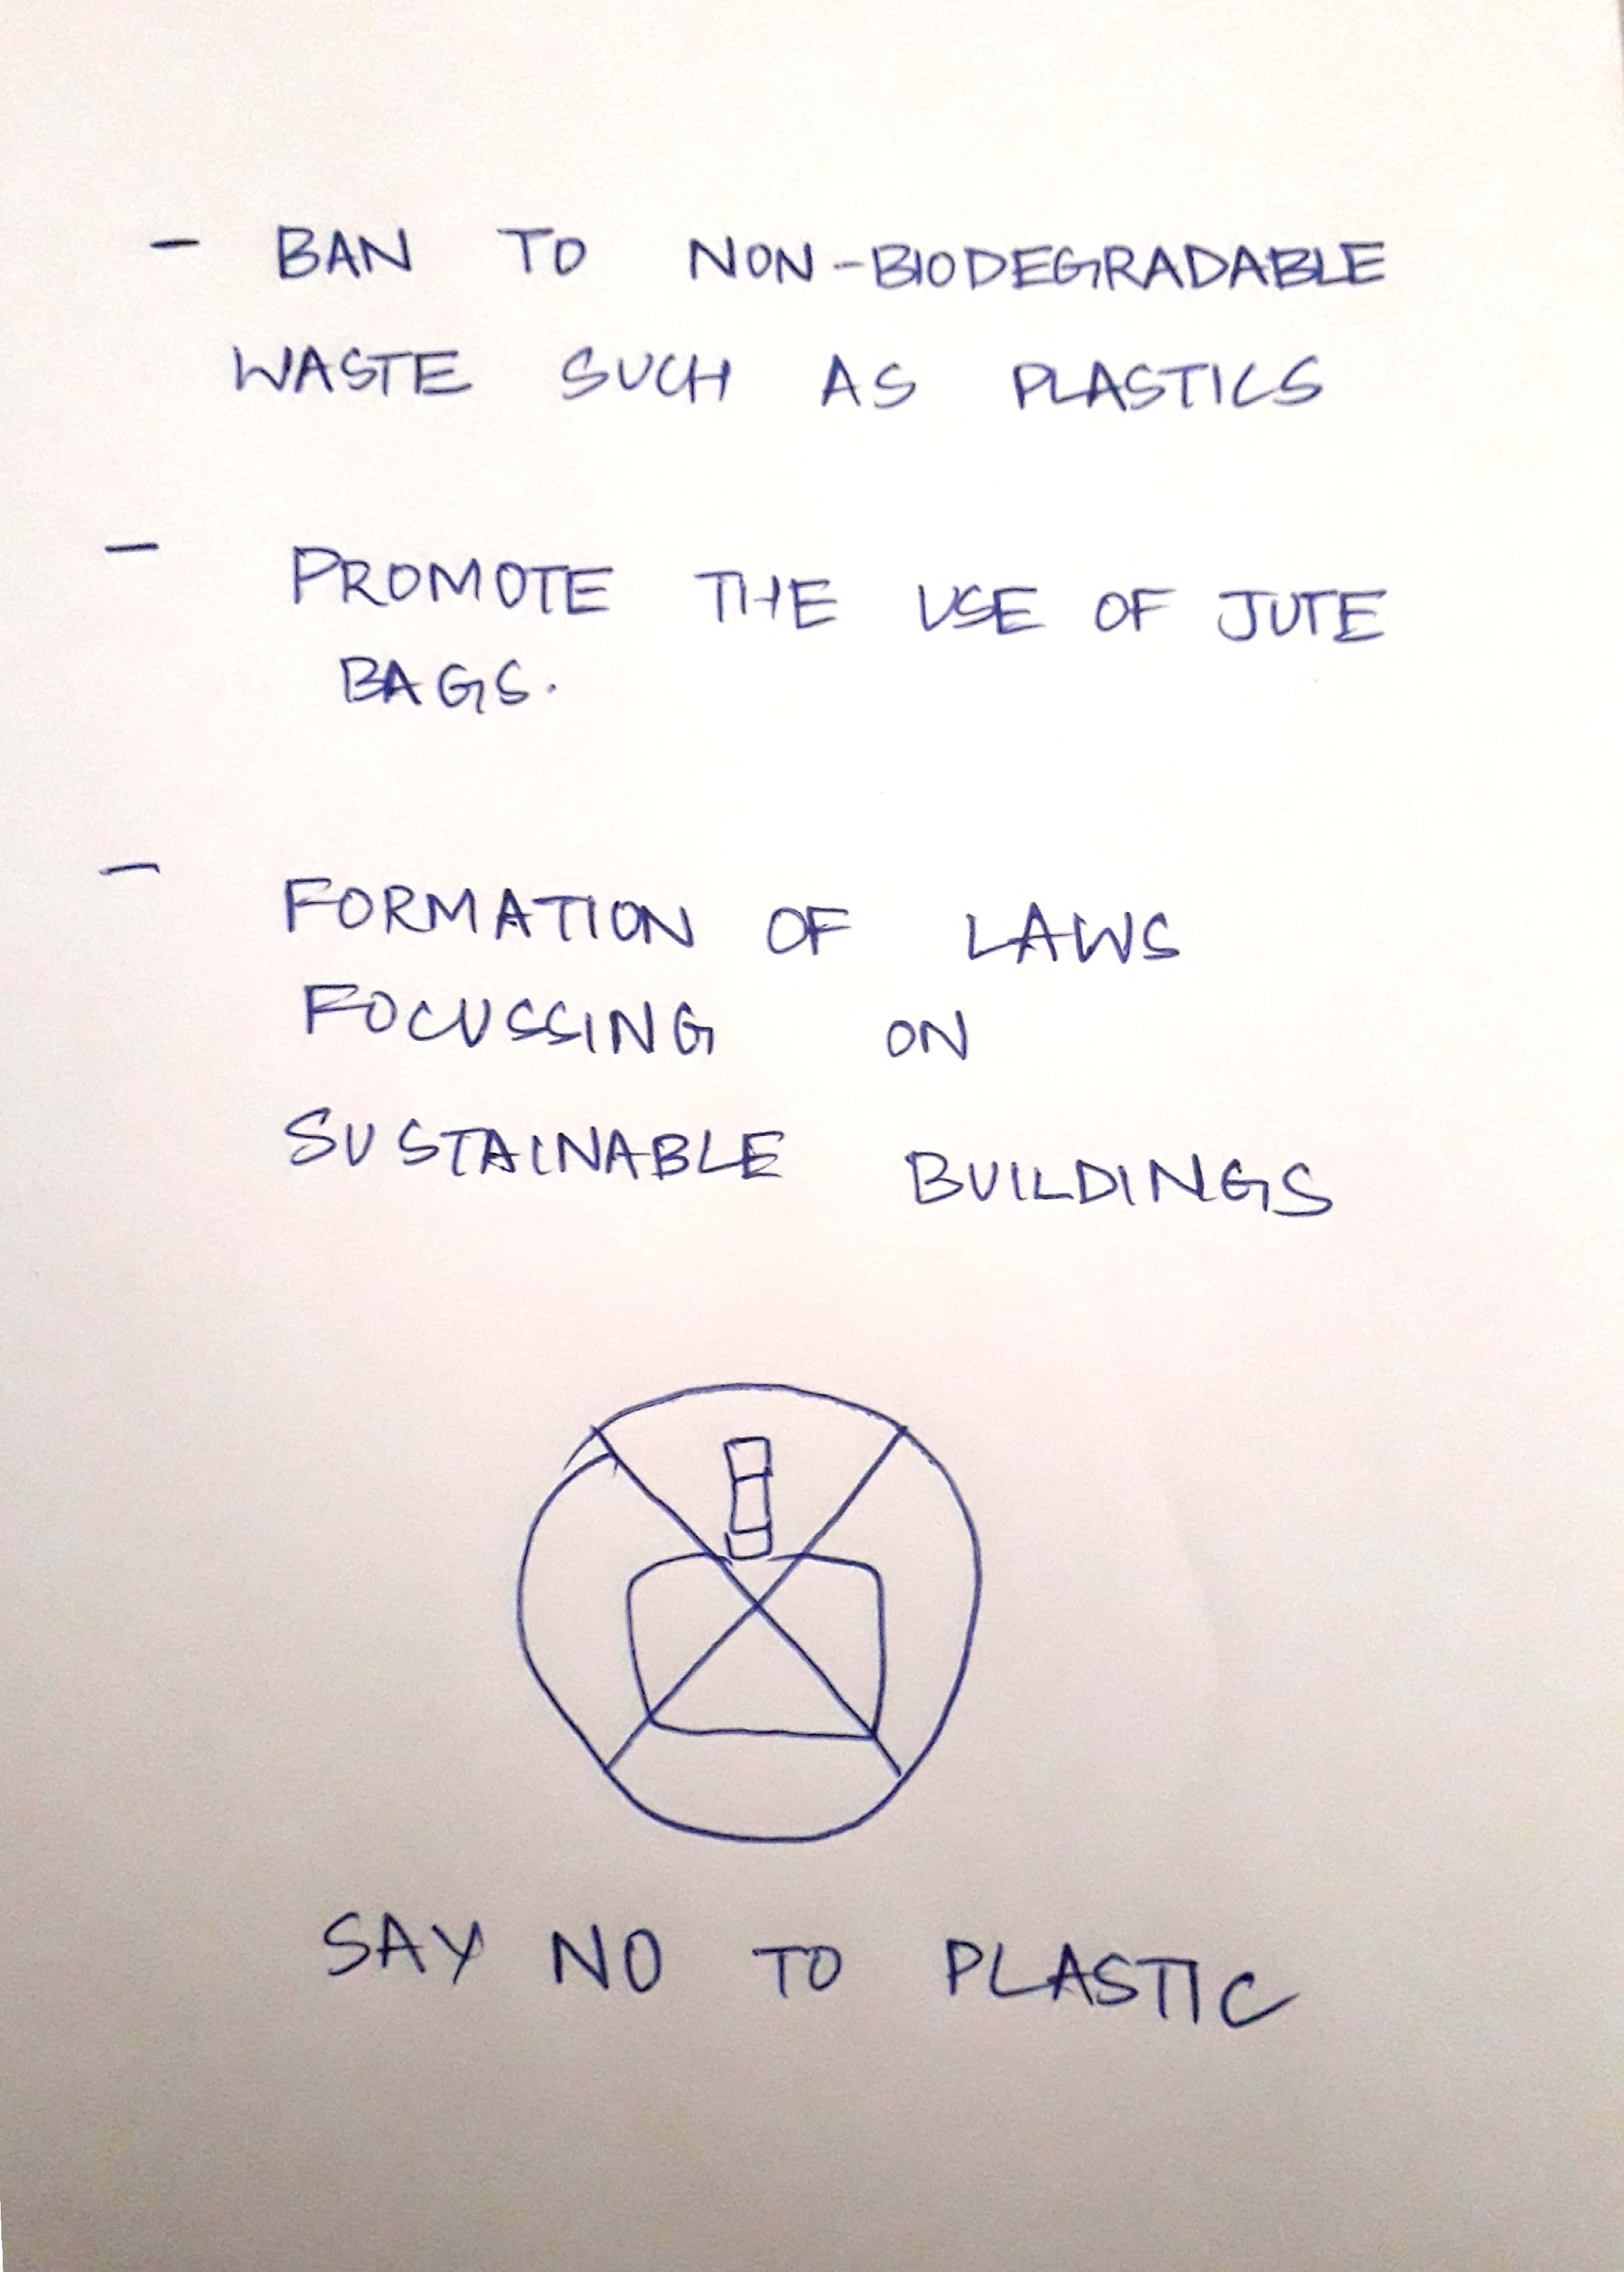 - BAN TO NON-BIODEGRADABLE
WASTE SUCH AS PLASTICS
- PROMOTE THE USE OF JUTE
BAGS.
- FORMATION OF LAWS
FOCUSSING ON
SUSTAINABLE BUILDINGS
SAY NO TO PLASTIC